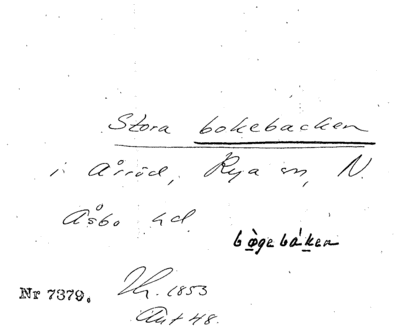 Stora bokebacken
i Årröd, Rya sn, N.
Åsbo hd.
bògebáken
Nr 7379.
1853
Ant 48.